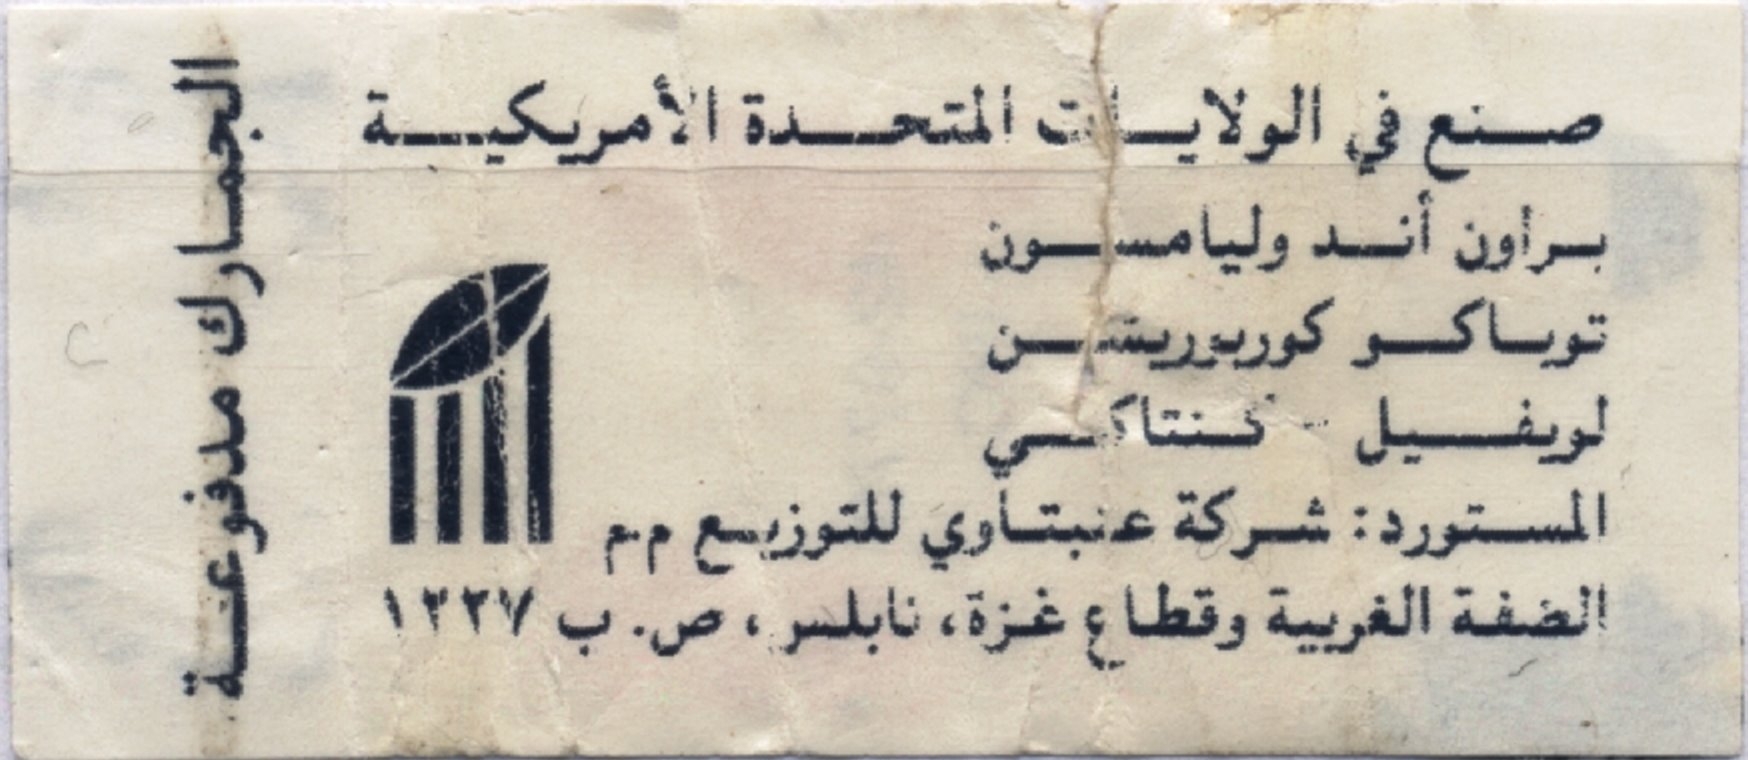 صنع في الولايات المتحدة الأمريكية
براون أند وليامسون
توباكو كوربوريشن
لويفيل - كنتاكي
المستورد: شركة عنبتاوي للتوزيع م.م
الضفة الغربية وقطاع غزة، نابلس، ص. ب ١٣٣٧
الجمارك مدفوعة